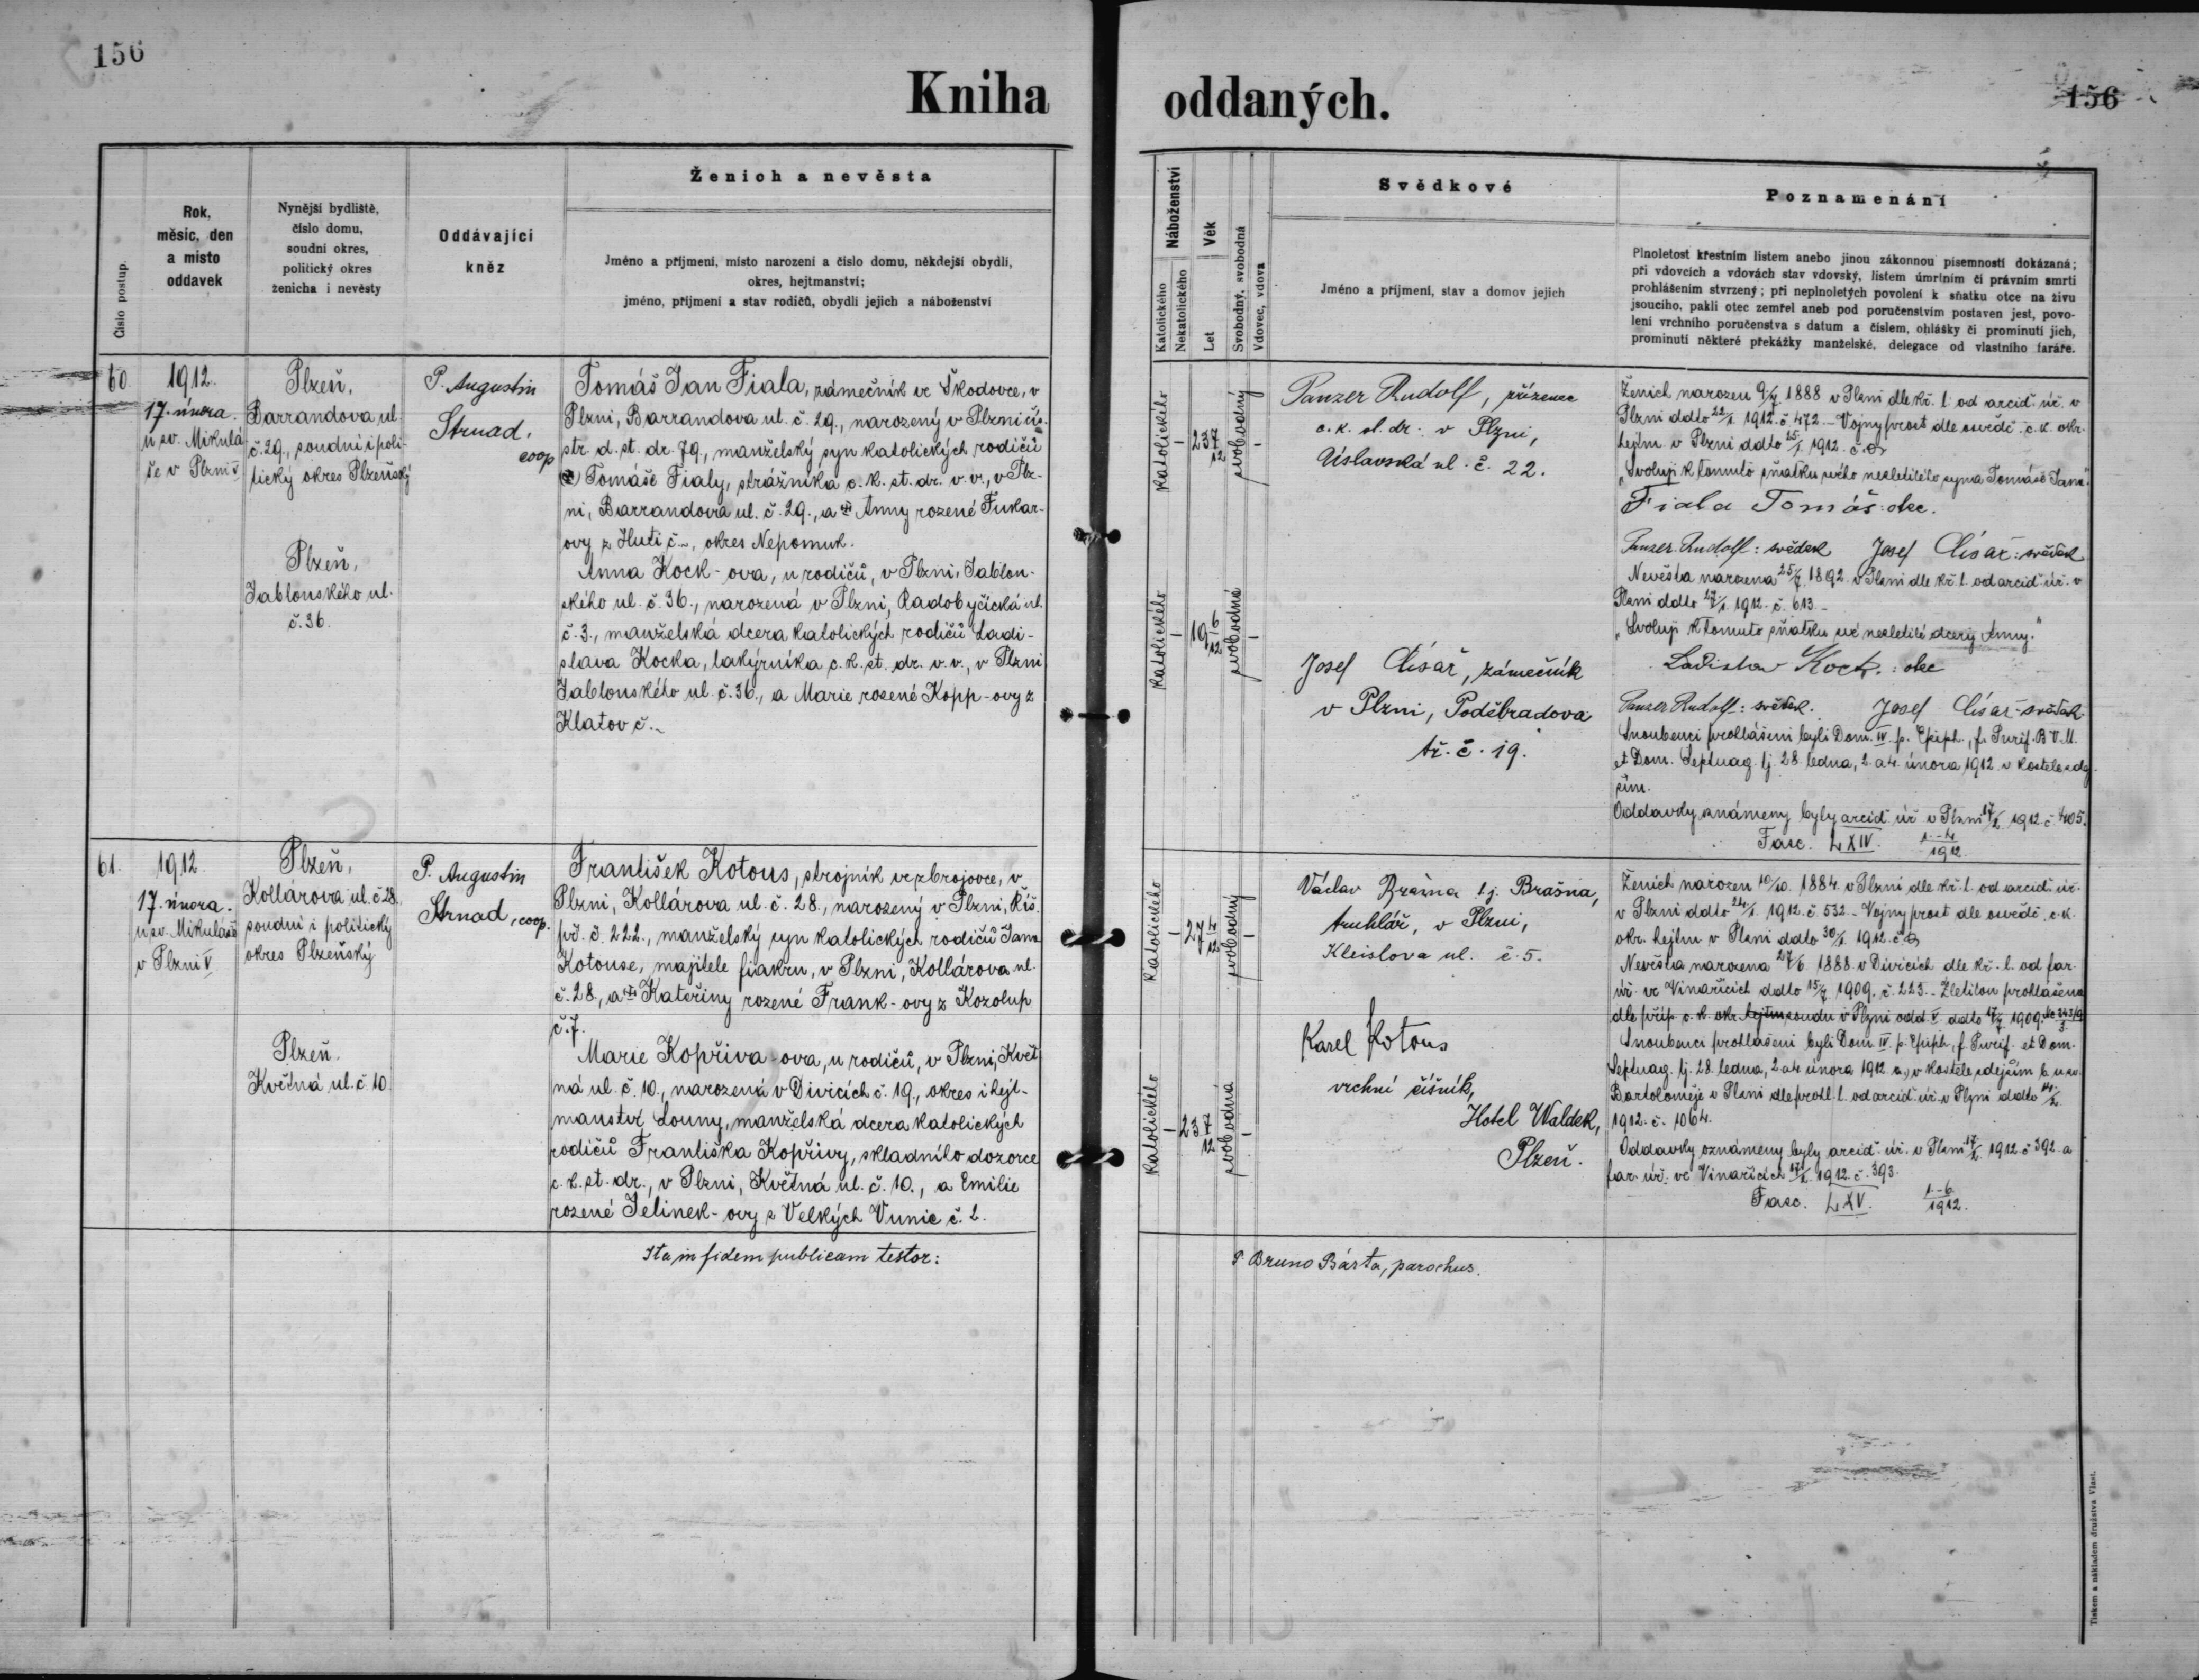 156
Kniha oddaných.
156
Číslo postup.
Rok,
měsíc, den
a místo
oddavek
Nynější bydliště,
číslo domu,
soudní okres,
politický okres
ženicha i nevěsty
Oddávající
kněz
Ženich a nevěsta
Jméno a příjmení, místo narození a číslo domu, někdejší obydlí,
okres, hejtmanství;
jméno, příjmení a stav rodičů, obydlí jejich a náboženství
Náboženství
Katolického
Nekatolického
Věk
Let
Svobodný, svobodná
Vdovec, vdova
Svědkové
Jméno a příjmení, stav a domov jejich
Poznamenání
Plnoletost křestním listem anebo jinou zákonnou písemností dokázaná;
při vdovcích a vdovách stav vdovský, listem úmrtním či právním smrti
prohlášením stvrzený; při neplnoletých povolení k sňatku otce na živu
jsoucího, pakli otec zemřel aneb pod poručenstvím postaven jest, povo-
lení vrchního poručenstva s datum a číslem, ohlášky či prominutí jich,
prominutí některé překážky manželské, delegace od vlastního faráře.
60
1912.
17. února.
u sv. Mikulá
še v Plzni
Plzeň,
Barrandova ul.
č. 29., soudní i poli-
tický okres Plzeňský
Plzeň,
Jablonského ul.
č. 36.
P. Augustin
Strnad,
coop
Tomáš Jan Fiala, zámečník ve Škodovce, v
Plzni, Barrandova ul. č. 29., narozený v Plzni
str. d. st. dr. 79., manželský syn katolických rodičů
Tomáše Fialy, strážníka c. k. st. dr. v. v., v Plz-
ni, Barrandova ul. č. 29., a Anny rozené Fukar-
ovy z Huti č. ~, okres Nepomuk.
Anna Kock-ova, u rodičů, v Plzni, Jablon-
ského ul. č. 36., narozená v Plzni, Radobyčická ul.
č. 3., manželská dcera katolických rodičů Ladi-
slava Kocka, lakýrníka c. k. st. dr. v. v., v Plzni
Jablonského ul. č. 36., a Marie rozené Kopp-ovy z
Klatov č. ~
katolického
–
23 7/12
svobodný
–
katolického
–
19 6/12
svobodná
–
Panzer Rudolf, zřízenec
c. k. st. dr. v Plzni,
Úslavská ul. č. 22.
Josef Císař, zámečník
v Plzni, Poděbradova
tř. č. 19.
Ženich narozen 9/7 1888 v Plzni dle kř. l. od arcid. úř. v
Plzni ddto 22/1. 1912. č. 472. – Vojny prost dle osvědč. c. k. okr.
hejtm. v Plzni ddto 25/1. 1912. č.
„Svoluji k tomuto sňatku svého nezletilého syna Tomáše Jana."
Fiala Tomáš: otec.
Panzer Rudolf: svědek Josef Císař: svědek
Nevěsta narozena 25/7 1892. v Plzni dle kř. l. od arcid. úř. v
Plzni ddto 27/1. 1912. č. 613. –
„Svoluji k tomuto sňatku své nezletilé dcery Anny."
Ladislav Kock.: otec
Panzer Rudolf: svědek. Josef Císař-svědek
Snoubenci prohlášeni byli Dom. IV. p. Epiph., f. Purif. B. V. M.
et Dom. Septuag. tj. 28. ledna, 2. a 4. února 1912. v kostele zdej-
ším.
Oddavky oznámeny byly arcid. úř. v Plzni 17/2. 1912. č. 405.
Fasc. LXIV. 1.-4./1912.
61.
1912.
17. února.
u sv. Mikuláše
v Plzni
Plzeň,
Kollárova ul. č. 28.
soudní i politický
okres Plzeňský
Plzeň,
Květná ul. č. 10.
P. Augustin
Strnad, coop.
František Kotous, strojník ve zbrojovce, v
Plzni, Kollárova ul. č. 28., narozený v Plzni, Říš.
př. č. 222., manželský syn katolických rodičů Jana
Kotouse, majitele fiakru, v Plzni, Kollárova ul.
č. 28., a Kateřiny rozené Frank-ovy z Kozolup
č. 7.
Marie Kopřiva-ova, u rodičů, v Plzni, Květ
ná ul. č. 10., narozená v Divicích č. 19., okres i hejt-
manství Louny, manželská dcera katolických
rodičů Františka Kopřivy, skladního dozorce
c. k. st. dr., v Plzni, Květná ul. č. 10., a Emilie
rozené Jelinek-ovy z Velkých Vunic č. 2.
katolického
–
27 4/12
svobodný
–
katolického
–
23 7/12
svobodná
–
Václav Brašna t. j. Brašna,
truhlář, v Plzni,
Kleislova ul. č. 5.
Karel Kotous
vrchní číšník,
Hotel Waldek,
Plzeň.
Ženich narozen 10/10. 1884. v Plzni dle kř. l. od arcid. úř.
v Plzni ddto 24/1. 1912. č. 532. – Vojny prost dle osvědč. c. k.
okr. hejtm. v Plzni ddto 30/1. 1912. č.
Nevěsta narozena 27/6. 1888. v Divicích dle kř. l. od far.
úř. ve Vinařicích ddto 15/7 1909. č. 223. – Zletilou prohlášena
dle příp. c. k. okr. soudu v Plzni odd. V. ddto 17/7 1909.
Snoubenci prohlášeni byli Dom. IV. p. Epiph., f. Purif. et Dom.
Septuag. tj. 28. ledna, 2. a 4. února 1912. a., v kostele zdejším b. u sv.
Bartoloměje v Plzni dle prohl. l. od arcid. úř. v Plzni ddto 14/2.
1912. č. 1064.
Oddavky oznámeny byly arcid. úř. v Plzni 17/2. 1912. č. 392. a
far. úř. ve Vinařicích 17/2. 1912. č. 393.
Fasc. LXV. 1.-6./1912.
Ita in fidem publicam testor:
P. Bruno Bárta, parochus.
Tiskem a nákladem družstva Vlast.